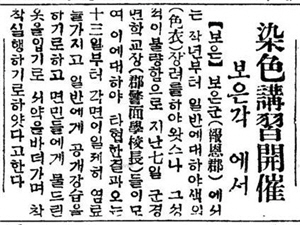 染色講習開催
보은각 에서
【보은】 보은군(報恩郡)에서
는 작년부터 일반에대하야색의
(色衣)장려를하야왓스나 그것
적이불량함으로 지난七일 군경
면학교장(郡警面學校長)들이모
여 이에대하야 타협한결과오는
十三일부터 각면이일제히 염료
를가지고 일반에게 공개강습을
하기로하고 면민들에게 물드린
옷을입기로 서약을바더가며 착
착실행하기로하얏다고한다